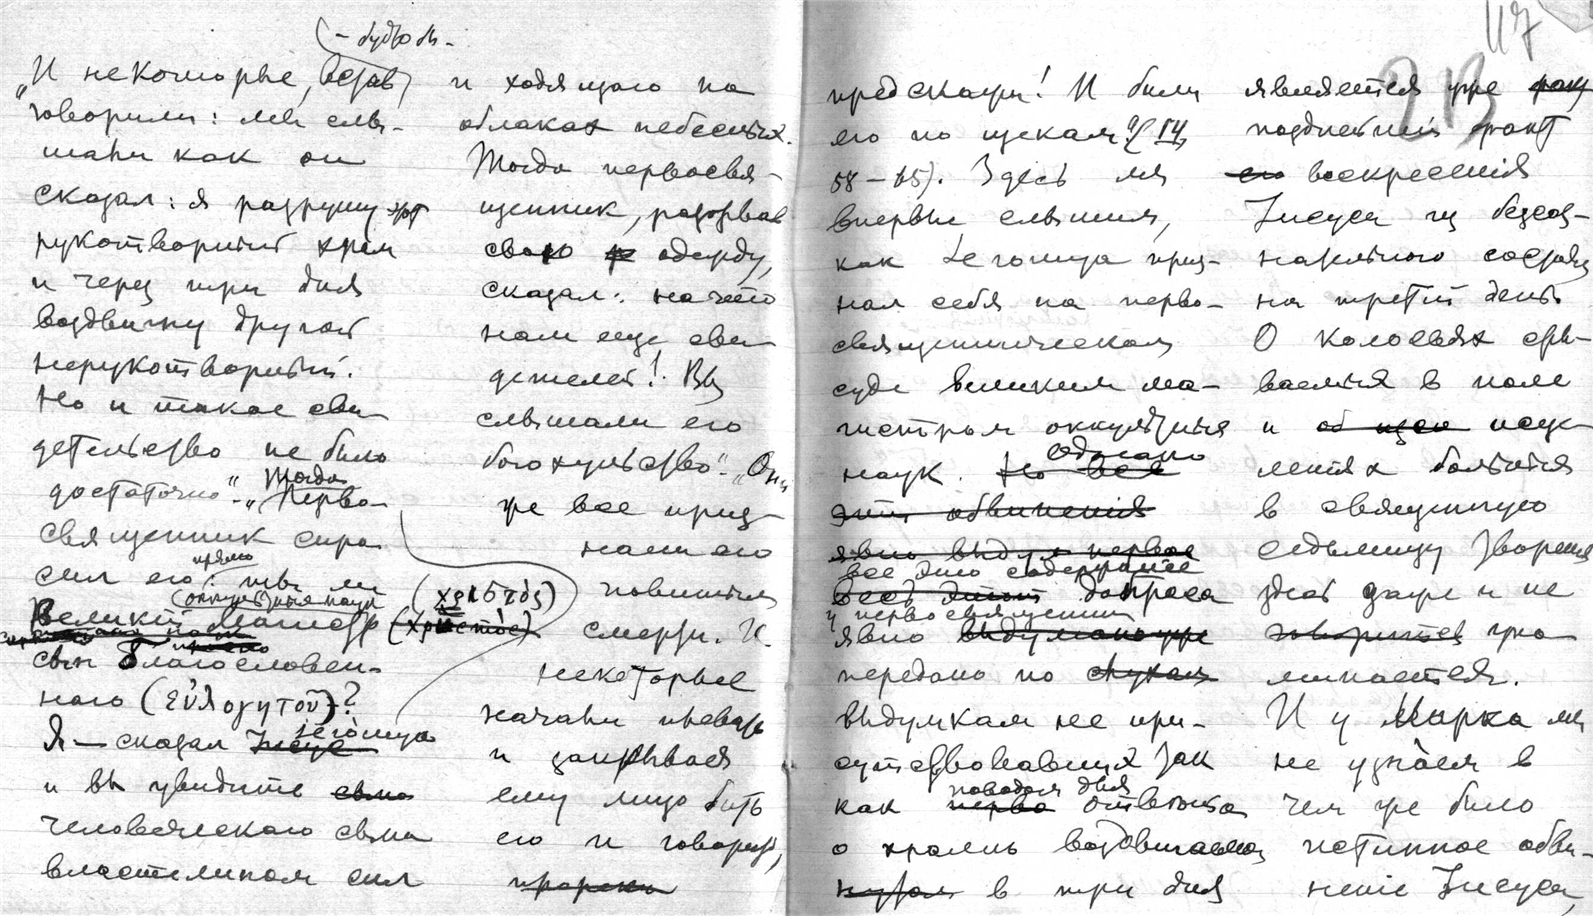 - будто бы -
„И некоторые, встав,
говорили: мы слы-
шали как он
сказал: я разрушу этот
рукотворный храм
и через три дня
воздвигну другой
нерукотворный.
Но и такое сви-
детельство не было
достаточно“. „Тогда Перво-
священник спро-
сил его прямо: ты ли
Великий Магистр (оккультных наук) (χριστός)
(Христос)
сын благословен-
ного (εὐλογητοῦ)?
Я — сказал Иисус
и вы увидите сына
человеческаго сына
властелином сил
и ходящаго на
облаках небесных.
Тогда первосвя-
щенник, разорвав
свою одежду,
сказал: на что
нам еще сви-
детелей! Вы
слышали его
богохульство“. „Они
же все приз-
нали его
повинным
смерти. И
некоторые
начали
и закрывая
ему лицо бить
его и говорить,
прореки
117
213
предскажи! И били
его по щекам“ (14
58—65). Здесь мы
впервые слышим,
как Iегошуа приз-
нал себя на перво-
священническом
суде великим ма-
гистром оккультных
наук. Но все Однако
эти обвинения
явно выдуманы первое
все это содержание
всего допроса
у первосвященника
явно выдумано уже
передано по слухам
выдумкам не при-
сутствовавших так
как поводом для ответа
о храме воздвигаемом
в три дня
является уже
позднейший факт
его воскресенiя
Iисуса из безсоз-
нательного состояния
на третiй день.
О колосьях сры-
ваемых в поле
и об исцелениях больных
в священную
седьмицу творения
здесь даже и не
говорится упо-
минается.
И у Марка мы
не узнаем в
чем же было
истинное обви-
ненiе Iисуса,